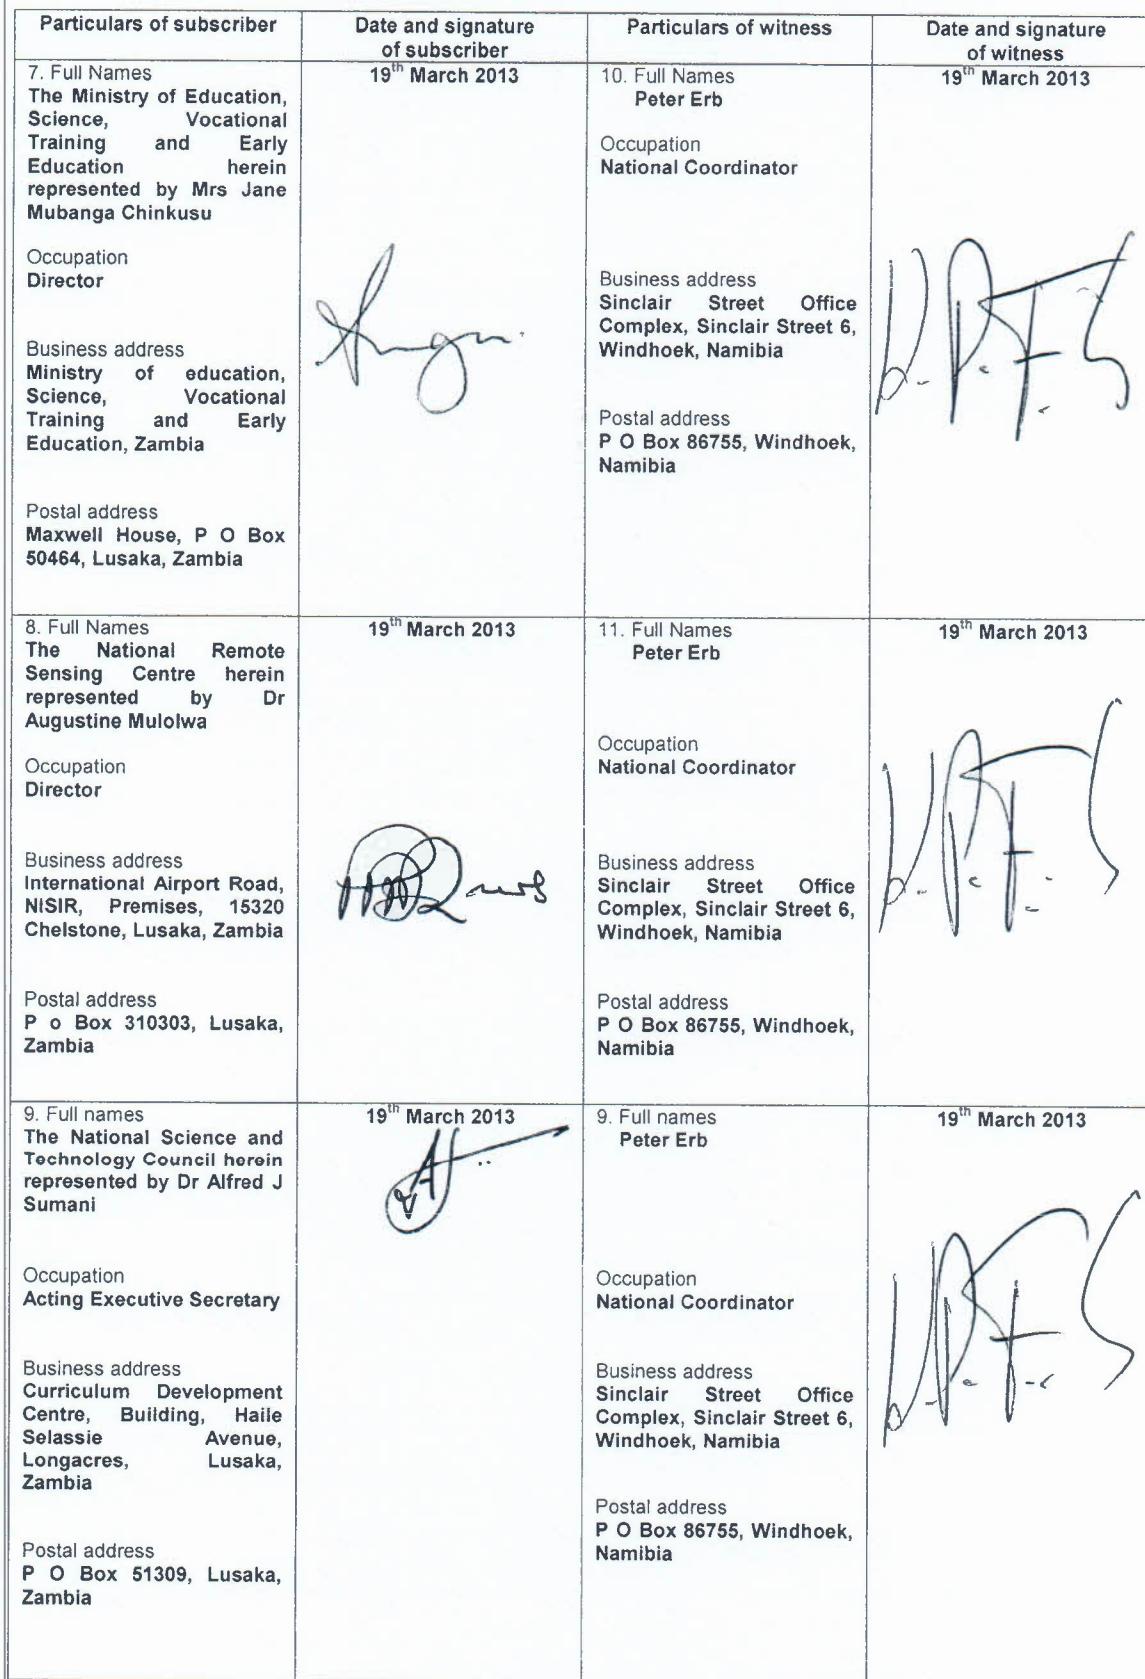 Particulars of subscriber
Date and signature
of subscriber
Particulars of witness
Date and signature
of witness
7. Full Names
The Ministry of Education,
Science, Vocational
Training and Early
Education herein
represented by Mrs Jane
Mubanga Chinkusu
Occupation
Director
Business address
Ministry of education,
Science, Vocational
Training and Early
Education, Zambia
Postal address
Maxwell House, P O Box
50464, Lusaka, Zambia
19th March 2013
10. Full Names
Peter Erb
Occupation
National Coordinator
Business address
Sinclair Street Office
Complex, Sinclair Street 6,
Windhoek, Namibia
Postal address
P O Box 86755, Windhoek,
Namibia
19th March 2013
8. Full Names
The National Remote
Sensing Centre herein
represented by Dr
Augustine Mulolwa
Occupation
Director
Business address
International Airport Road,
NISIR, Premises, 15320
Chelstone, Lusaka, Zambia
Postal address
P o Box 310303, Lusaka,
Zambia
19th March 2013
11. Full Names
Peter Erb
Occupation
National Coordinator
Business address
Sinclair Street Office
Complex, Sinclair Street 6,
Windhoek, Namibia
Postal address
P O Box 86755, Windhoek,
Namibia
19th March 2013
9. Full names
The National Science and
Technology Council herein
represented by Dr Alfred J
Sumani
Occupation
Acting Executive Secretary
Business address
Curriculum Development
Centre, Building, Haile
Selassie Avenue,
Longacres, Lusaka,
Zambia
Postal address
P O Box 51309, Lusaka,
Zambia
19th March 2013
9. Full names
Peter Erb
Occupation
National Coordinator
Business address
Sinclair Street Office
Complex, Sinclair Street 6,
Windhoek, Namibia
Postal address
P O Box 86755, Windhoek,
Namibia
19th March 2013